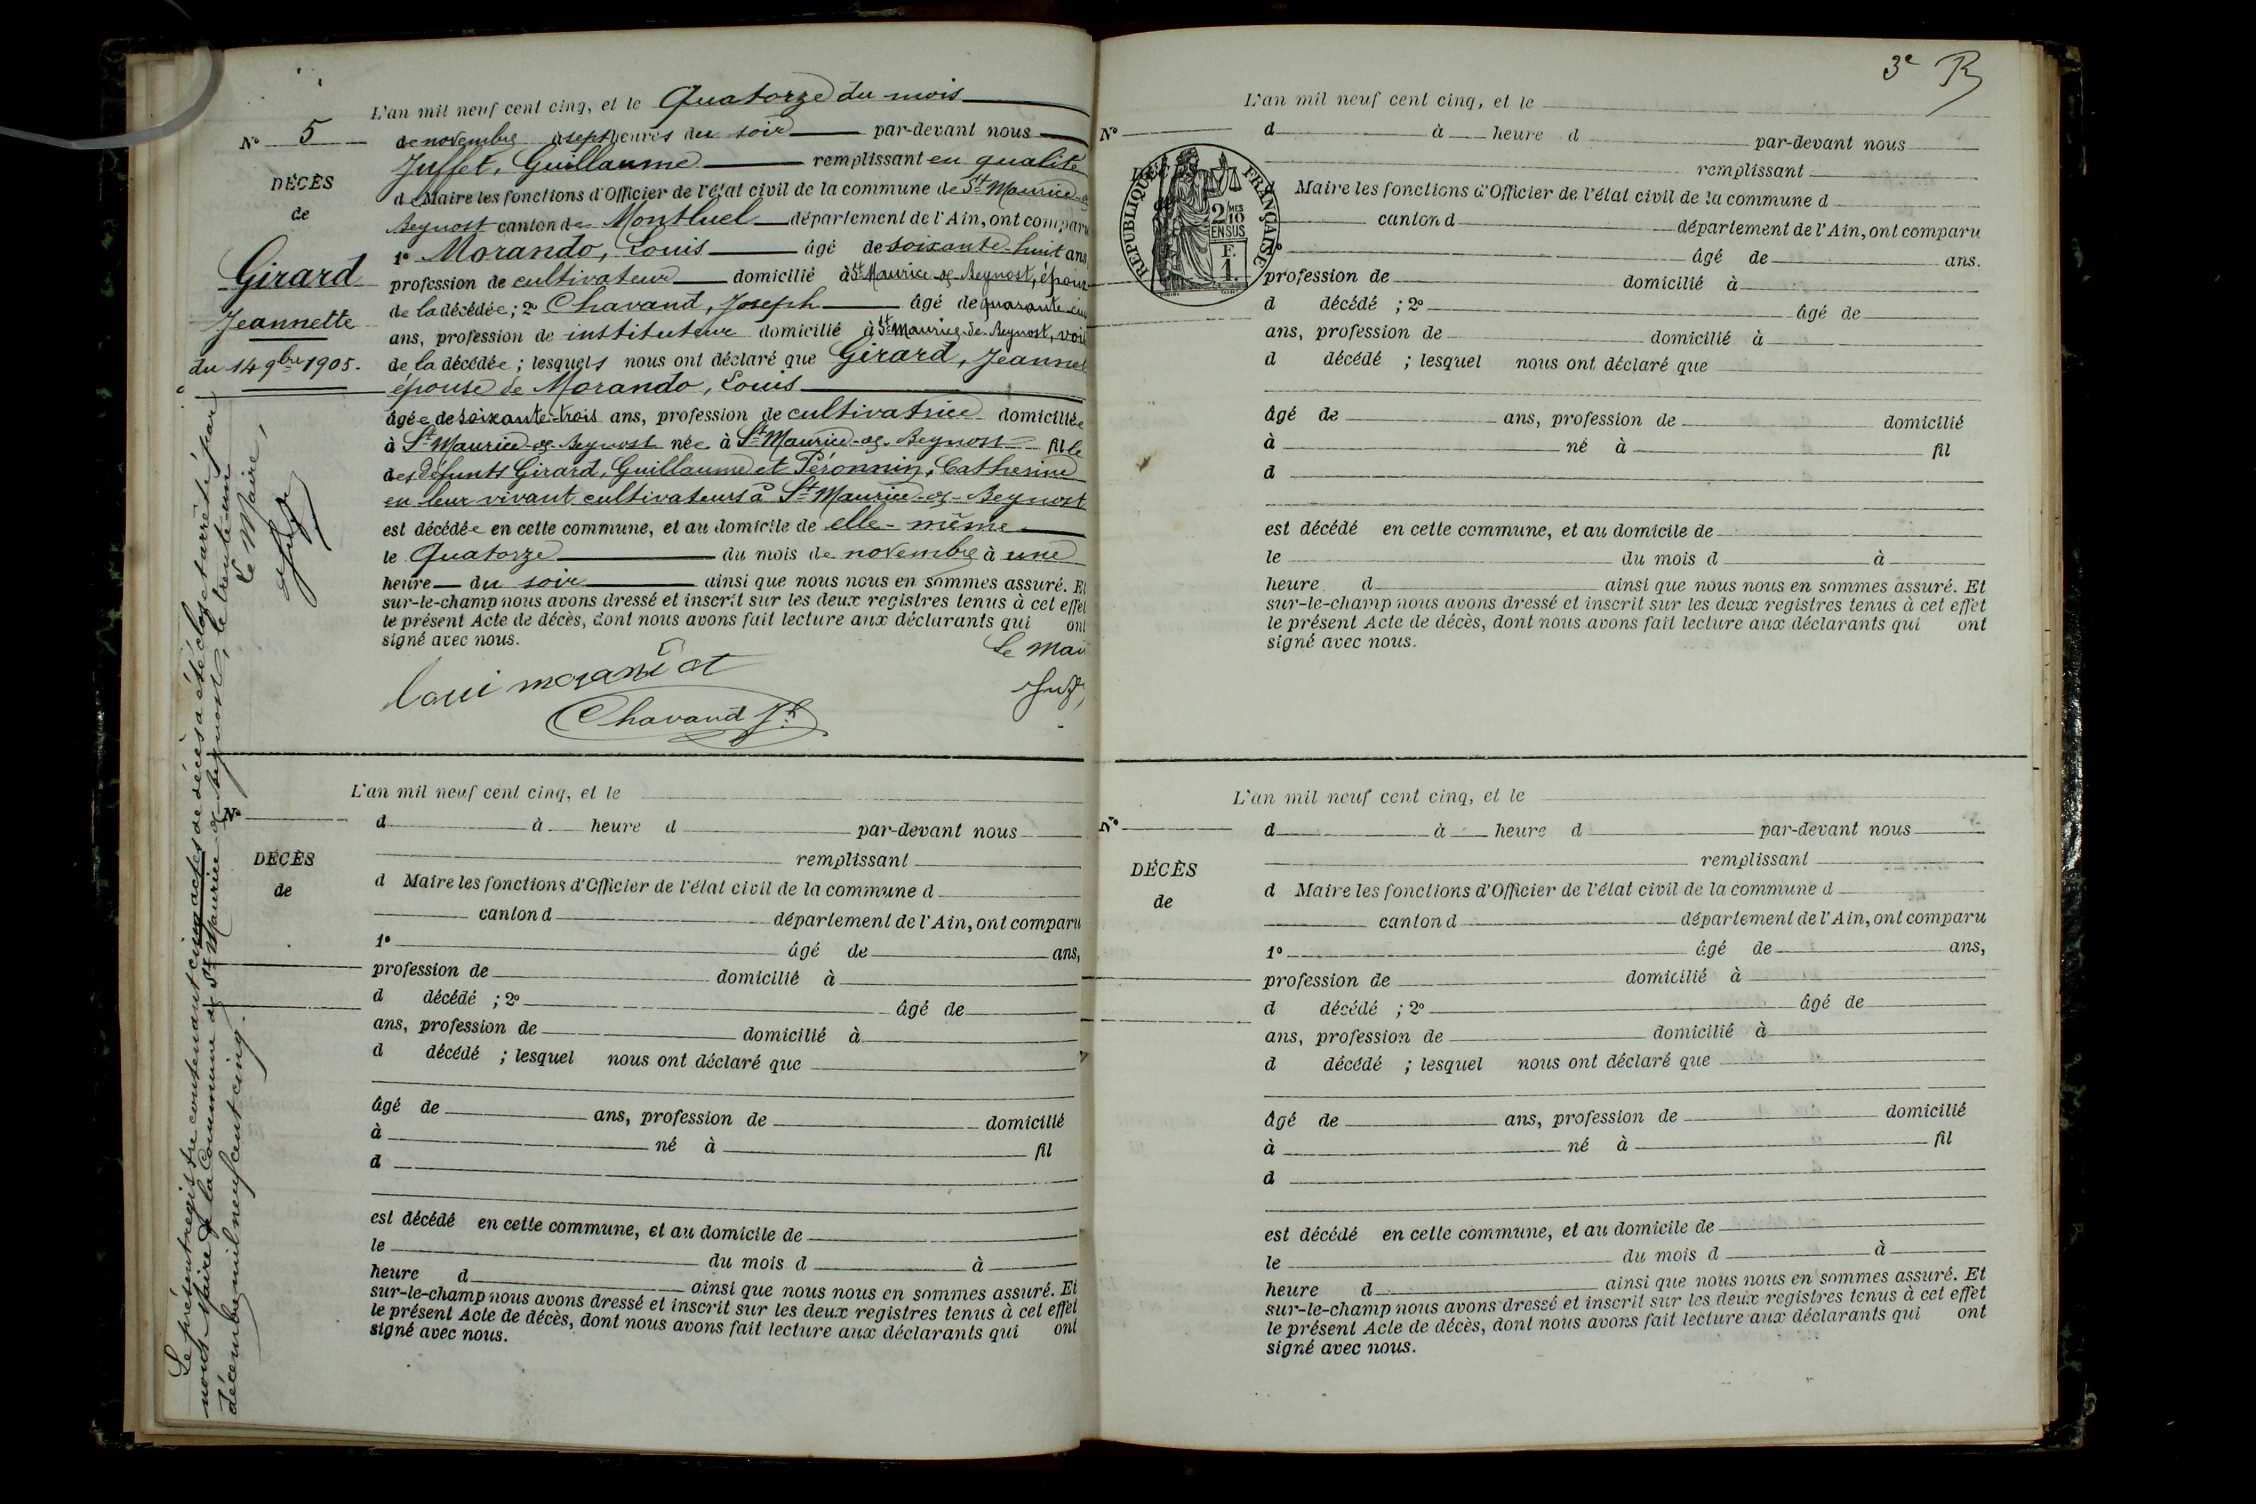 L'an mil neuf cent cinq, et le Quatorze du mois
N° 5 de novembre à sept heures du soir par-devant nous
Juffet, Guillaume remplissant en qualité
DÉCÈS
de Maire les fonctions d'Officier de l'état civil de la commune de St Maurice de
de
Beynost canton de Montluel département de l'Ain, ont comparu
1° Morando, Louis âgé de soixante-huit ans
Girard
profession de cultivateur domicilié à St Maurice de Beynost, époux
de la décédée ; 2° Chavand, Joseph âgé de quarante-cinq
Jeannette
ans, profession de instituteur domicilié à St Maurice-de-Beynost, voisin
du 14 9bre 1905.
de la décédée ; lesquels nous ont déclaré que Girard, Jeannette
épouse de Morando, Louis
âgée de soixante-trois ans, profession de cultivatrice domiciliée
à St Maurice-de-Beynost née à St Maurice-de-Beynost fille
des défunts Girard, Guillaume et Péronnin, Catherine
en leur vivant cultivateurs à St Maurice-de-Beynost
est décédée en cette commune, et au domicile de elle-même
le Quatorze du mois de novembre à une
heure du soir ainsi que nous nous en sommes assuré. Et
sur-le-champ nous avons dressé et inscrit sur les deux registres tenus à cet effet
le présent Acte de décès, dont nous avons fait lecture aux déclarants qui ont
signé avec nous.
Le Mai
Chavand Jh
Le présent registre contenant cinq actes de décès a été clos et arrêté par
nous Maire de la Commune de St Maurice de Beynost, le trente-un
décembre mil neuf cent cinq.
Le Maire,
L'an mil neuf cent cinq, et le
N°
d à heure d par-devant nous
remplissant
DÉCÈS
d Maire les fonctions d'Officier de l'état civil de la commune d
de
canton d département de l'Ain, ont comparu
1° âgé de ans,
profession de domicilié à
d décédé ; 2° âgé de
ans, profession de domicilié à
d décédé ; lesquel nous ont déclaré que
âgé de ans, profession de domicilié
à né à fil
d
est décédé en cette commune, et au domicile de
le du mois d à
heure d ainsi que nous nous en sommes assuré. Et
sur-le-champ nous avons dressé et inscrit sur les deux registres tenus à cet effet
le présent Acte de décès, dont nous avons fait lecture aux déclarants qui ont
signé avec nous.
3e
L'an mil neuf cent cinq, et le
N°
d à heure d par-devant nous
remplissant
RÉPUBLIQUE FRANÇAISE
2/10 MES
EN SUS
F.
1.
Maire les fonctions d'Officier de l'état civil de la commune d
canton d département de l'Ain, ont comparu
âgé de ans.
profession de domicilié à
d décédé ; 2° âgé de
ans, profession de domicilié à
d décédé ; lesquel nous ont déclaré que
âgé de ans, profession de domicilié
à né à fil
d
est décédé en cette commune, et au domicile de
le du mois d à
heure d ainsi que nous nous en sommes assuré. Et
sur-le-champ nous avons dressé et inscrit sur les deux registres tenus à cet effet
le présent Acte de décès, dont nous avons fait lecture aux déclarants qui ont
signé avec nous.
L'an mil neuf cent cinq, et le
N°
d à heure d par-devant nous
remplissant
DÉCÈS
d Maire les fonctions d'Officier de l'état civil de la commune d
de
canton d département de l'Ain, ont comparu
1° âgé de ans,
profession de domicilié à
d décédé ; 2° âgé de
ans, profession de domicilié à
d décédé ; lesquel nous ont déclaré que
âgé de ans, profession de domicilié
à né à fil
d
est décédé en cette commune, et au domicile de
le du mois d à
heure d ainsi que nous nous en sommes assuré. Et
sur-le-champ nous avons dressé et inscrit sur les deux registres tenus à cet effet
le présent Acte de décès, dont nous avons fait lecture aux déclarants qui ont
signé avec nous.